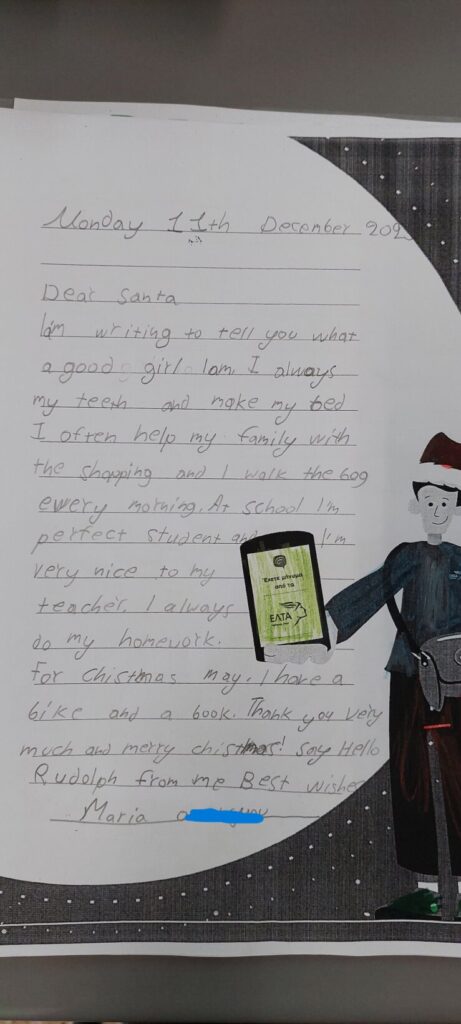 Monday 11th December 202
Dear Santa
I'am writing to tell you what
a good girl Iam. I always
my teeth and make my bed
I often help my family with
the shopping and I walk the bog
every morning. At school I'm
perfect student and I'm
very nice to my
teacher. I always
do my homework.
For Chistmas may. I have a
bike and a book. Thank you very
much and merry chistmas! Say Hello
Rudolph from me Best wishes
Maria
Έχετε μήνυμα
από τα
ΕΛΤΑ